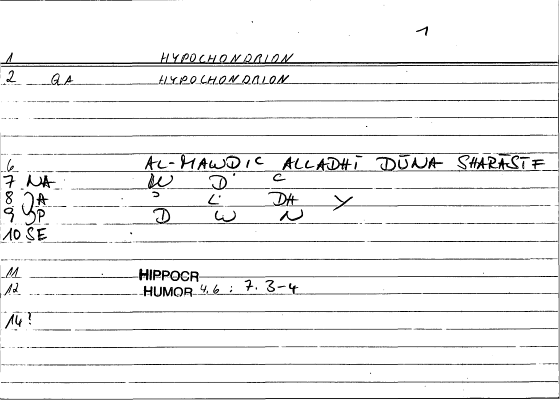 1
1 HYPOCHONDRION
2 QA HYPOCHONDRION
6 AL-MAWDIC ALLADHĪ DŪNA SHARĀSĪF
7 NA W D C
8 JA L DH Y
9 JP D W N
10 SE
11 HIPPOCR
12 HUMOR 4,6 : 7. 3-4
14!